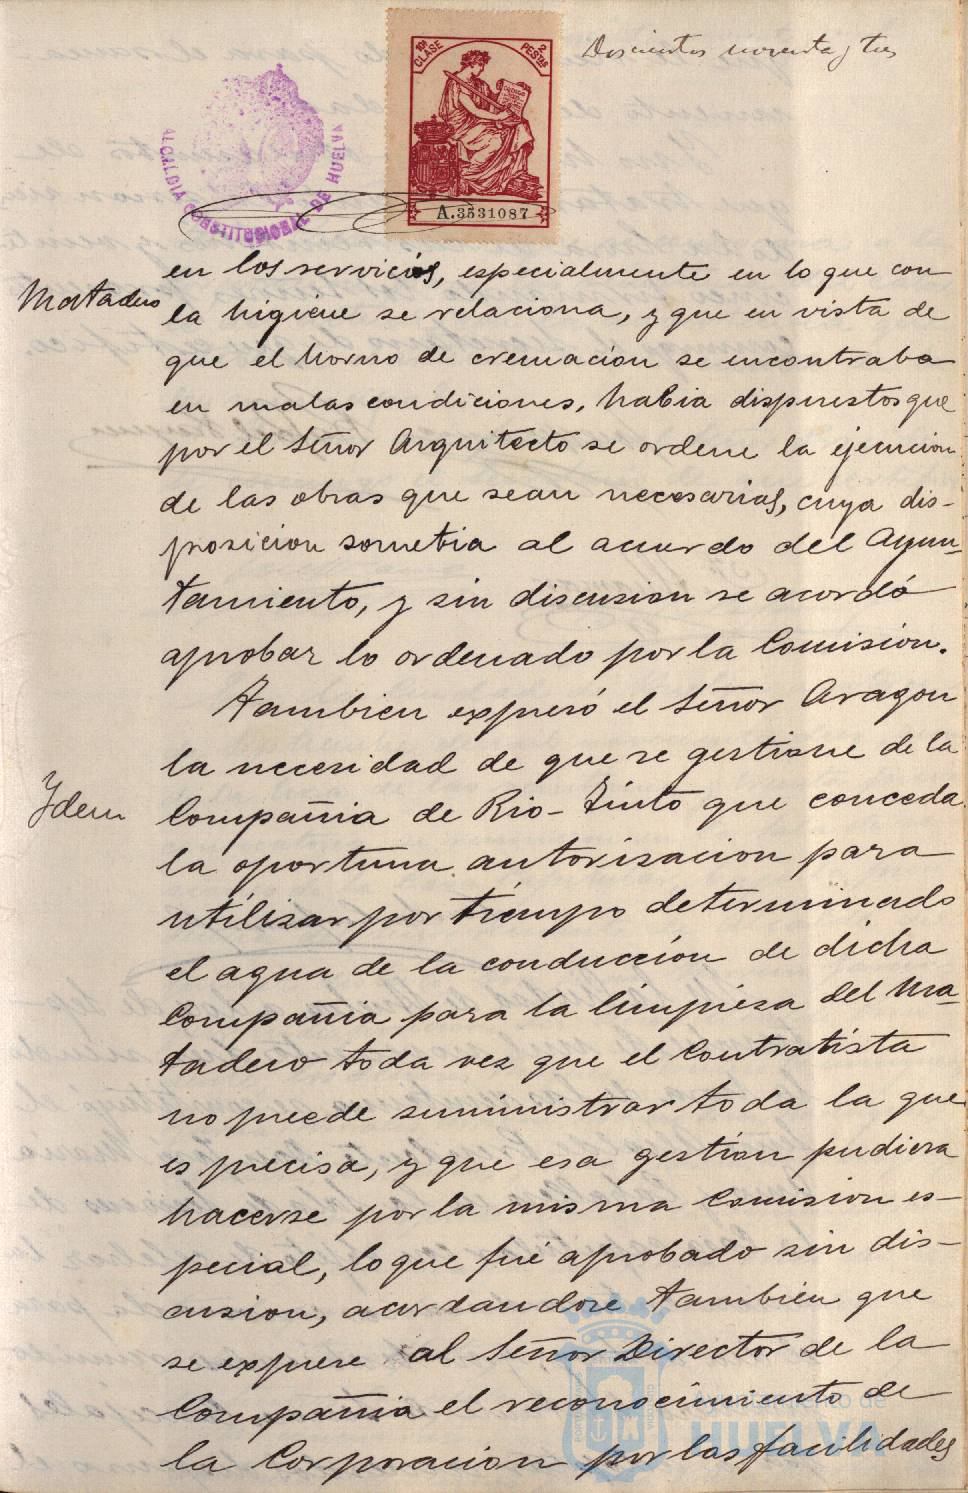 Doscientos noventa y tres
10ª CLASE
2 PESTAS
ALCALDIA CONSTITUCIONAL DE HUELVA
A.3531087
Matadero
en los servicios, especialmente en lo que con
la higiene se relaciona, y que en vista de
que el horno de cremación se encontraba
en malas condiciones, habia dispuestos que
por el Señor Arquitecto se ordene la ejecucion
de las obras que sean necesarias, cuya dis-
posicion sometia al acuerdo del Ayun-
tamiento, y sin discusion se acordó
aprobar lo ordenado por la Comisión.
Tambien expresó el Señor Aragon
la necesidad de que se gestione de la
Ydem
Compañia de Rio-Tinto que conceda
la oportuna autorisacion para
utilizar por tiempo determinado
el agua de la conducción de dicha
Compañia para la limpiesa del Ma-
tadero toda vez que el Contratista
no puede suministrar toda la que
es precisa, y que esa gestion pudiera
hacerse por la misma Comision es-
pecial, lo que fué aprobado sin dis-
cusion, acordandose tambien que
se exprese al Señor Director de la
Compañia el reconocimiento de
la Corporacion por las facilidades
Ayuntamiento de
HUELVA